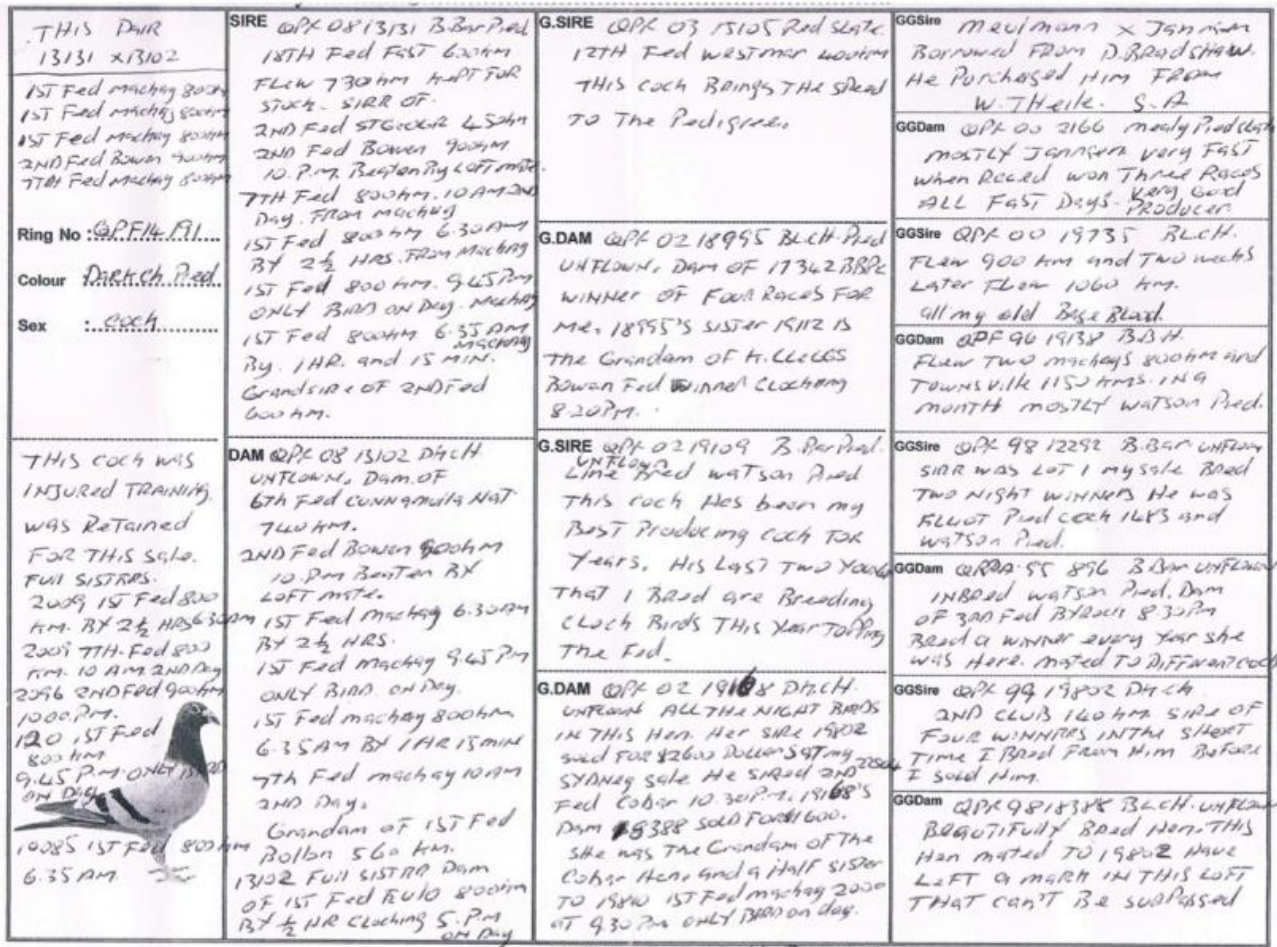 THIS PAIR
13131 x 13102
1ST Fed Mackay 800km
1ST Fed Mackay 800km
1ST Fed Mackay 800km
2ND Fed Bowen 900km
7TH Fed Mackay 800km
Ring No : QPF14 191
Colour DARK Ch Pied.
Sex : cock
THIS COCK WAS
INJURED TRAINING.
WAS RETAINED
FOR THIS Sale.
FULL SISTERS.
2009 1ST Fed 800
KM. BY 2½ HRS 6.30AM
2009 7TH. Fed 800
KM. 10 AM 2ND Day
2096 2ND Fed 900km
10.00.P.m.
120 1ST Fed
800 km
9.45 P.M. ONLY BIRD
ON Day.
10085 1ST Fed 800 km
6.35 AM
SIRE QPF 08 13131 B.Bar Pied
18TH Fed Fast 600km
FLEW 730 km KEPT FOR
STOCK. SIRE OF.
2ND Fed ST George 450km
2ND Fed Bowen 900km
10. P.m. Beaten By LOFT mate.
7TH Fed 800km. 10 AM 2ND
Day. From Mackay
1ST Fed 800 km 6.30AM
BY 2½ HRS. From Mackay
1ST Fed 800 km. 9.45 P.m
ONLY BIRD ON Day. Mackay
1ST Fed 800km 6.35 AM
Mackay
By. 1HR. and 15 MIN.
Grandsire OF 2ND Fed
600 km.
DAM QPF 08 13102 DK CH
UNFLOWN. Dam OF
6TH Fed CUNNAMULLA NAT
740 km.
2ND Fed Bowen 900km
10. P.m Beaten BY
LOFT mate.
1ST Fed Mackay 6.30AM
BY 2½ HRS.
1ST Fed Mackay 9.45 P.m
ONLY BIRD. ON Day.
1ST Fed Mackay 800km.
6.35 AM BY 1 HR 15 min
7TH Fed Mackay 10 AM
2ND Day.
Grandam OF 1ST Fed
Bollon 560 km.
13102 FULL SISTER Dam
OF 1ST Fed EULO 800km
BY ½ HR Clocking 5. P.m
ON Day
G.SIRE QPF 03 15105 Red Slate.
12TH Fed Westmar 400km
THIS COCK BRINGS THE SPEED
TO THE Pedigree.
G.DAM QPF 02 18995 BL.CH. Pied
UNFLOWN. DAM OF 17342 BBPC
WINNER OF Four Races FOR
Me. 18995'S SISTER 19112 IS
The Grandam OF K. CLEGGS
Bowen Fed Winner Clocking
8.20 P.M.
G.SIRE QPF 02 19109 B.Bar Pied.
UNFLOWN
Line Bred Watson Pied
This cock Has been my
Best Producing cock FOR
Years. His LAST Two Young
That I Bred are Breeding
Clock Birds THIS Year Topping
The Fed.
G.DAM QPF 02 19168 DK.CH.
UNFLOWN ALL THE NIGHT BIRDS
IN THIS Hen. Her SIRE 19802
sold FOR $2600 Dollars at my 2004
SYDNEY sale He SIRED 2ND
Fed Cobar 10.30 P.M. 19168'S
Dam 18388 SOLD FOR $1600.
She was The Grandam of The
Cobar Hen. and a Half SISTER
TO 19840 1ST Fed Mackay 2000
AT 9.30 P.m ONLY BIRD on day.
GGSire Meulmann x Janssen
Borrowed From D. BRADSHAW.
He Purchased Him From
W. THEILE. S.A
GGDam QPF 00 2166 Mealy Pied
MOSTLY Janssen very Fast
when Raced won Three Races
ALL FAST Days. very Good
Producer.
GGSire QPF 00 19735 BL.CH.
Flew 900 km and Two weeks
Later Flew 1060 km.
all my old Base Blood.
GGDam QPF 96 19138 B.B.H.
Flew Two Mackays 800km and
Townsville 1150 kms. IN a
MONTH mostly Watson Pied.
GGSire QPF 98 12292 B.Bar UNFLOWN
SIRE WAS LOT 1 my sale Bred
Two NIGHT WINNERS He was
ELLIOT Pied cock 1483 and
Watson Pied.
GGDam QRPA. 95 896 B.Bar UNFLOWN
INBRED Watson Pied. Dam
OF 3RD Fed BYROCK 8.30Pm
BRED a WINNER every Year she
was Here. mated TO Different cock
GGSire QPF 99 19802 DK Ch.
2ND CLUB 140 km. SIRE OF
FOUR WINNERS IN THE SHORT
Time I BRED From Him BeFore
I sold Him.
GGDam QPF 98 18388 BLCH. UNFLOWN
BEAUTIFULLY Bred Hen. THIS
Hen mated TO 19802 Have
LeFT a mark IN THIS LOFT
THAT can't Be surpassed